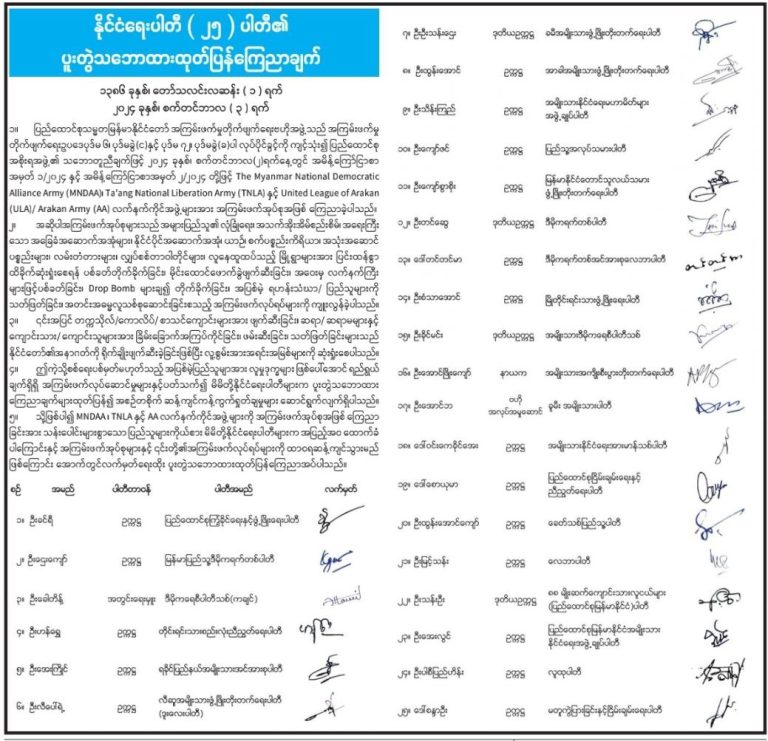 နိုင်ငံရေးပါတီ ( ၂၅ ) ပါတီ၏
ပူးတွဲသဘောထားထုတ်ပြန်ကြေညာချက်
၁၃၈၆ ခုနှစ်၊ တော်သလင်းလဆန်း ( ၁ ) ရက်
၂၀၂၄ ခုနှစ်၊ စက်တင်ဘာလ ( ၃ ) ရက်
၁။ ပြည်ထောင်စုသမ္မတမြန်မာနိုင်ငံတော် အကြမ်းဖက်မှုတိုက်ဖျက်ရေးဗဟိုအဖွဲ့သည် အကြမ်းဖက်မှု
တိုက်ဖျက်ရေးဥပဒေပုဒ်မ ၆၊ ပုဒ်မခွဲ(င)နှင့် ပုဒ်မ ၇၂၊ ပုဒ်မခွဲ(ခ)ပါ လုပ်ပိုင်ခွင့်ကို ကျင့်သုံး၍ ပြည်ထောင်စု
အစိုးရအဖွဲ့၏ သဘောတူညီချက်ဖြင့် ၂၀၂၄ ခုနှစ်၊ စက်တင်ဘာလ(၂)ရက်နေ့တွင် အမိန့်ကြော်ငြာစာ
အမှတ် ၁/၂၀၂၄ နှင့် အမိန့်ကြော်ငြာစာအမှတ် ၂/၂၀၂၄ တို့ဖြင့် The Myanmar National Democratic
Alliance Army (MNDAA)၊ Ta'ang National Liberation Army (TNLA) နှင့် United League of Arakan
(ULA)/ Arakan Army (AA) လက်နက်ကိုင်အဖွဲ့များအား အကြမ်းဖက်အုပ်စုအဖြစ် ကြေညာခဲ့ပါသည်။
၂။ အဆိုပါအကြမ်းဖက်အုပ်စုများသည် အများပြည်သူ၏ လုံခြုံရေး၊ အသက်အိုးအိမ်စည်းစိမ်၊ အရေးကြီး
သော အခြေခံအဆောက်အအုံများ၊ နိုင်ငံပိုင်အဆောက်အအုံ၊ ယာဉ်၊ စက်ပစ္စည်းကိရိယာ၊ အသုံးအဆောင်
ပစ္စည်းများ၊ လမ်းတံတားများ၊ လျှပ်စစ်တာဝါတိုင်များ၊ လူနေထူထပ်သည့် မြို့ရွာများအား ပြင်းထန်စွာ
ထိခိုက်ဆုံးရှုံးစေရန် ပစ်ခတ်တိုက်ခိုက်ခြင်း၊ မိုင်းထောင်ဖောက်ခွဲဖျက်ဆီးခြင်း၊ အဝေးမှ လက်နက်ကြီး
များဖြင့်ပစ်ခတ်ခြင်း၊ Drop Bomb များချ၍ တိုက်ခိုက်ခြင်း၊ အပြစ်မဲ့ ရဟန်းသံဃာ၊ ပြည်သူများကို
သတ်ဖြတ်ခြင်း၊ အတင်းအဓမ္မလူသစ်စုဆောင်းခြင်းစသည့် အကြမ်းဖက်လုပ်ရပ်များကို ကျူးလွန်ခဲ့ပါသည်။
၃။ ၎င်းအပြင် တက္ကသိုလ်/ကောလိပ်/ စာသင်ကျောင်းများအား ဖျက်ဆီးခြင်း၊ ဆရာ/ ဆရာမများနှင့်
ကျောင်းသား/ ကျောင်းသူများအား ခြိမ်းခြောက်အကြပ်ကိုင်ခြင်း၊ ဖမ်းဆီးခြင်း၊ သတ်ဖြတ်ခြင်းများသည်
နိုင်ငံတော်၏အနာဂတ်ကို ရိုက်ချိုးဖျက်ဆီးခဲ့ခြင်းဖြစ်ပြီး လူ့စွမ်းအားအရင်းအမြစ်များကို ဆုံးရှုံးစေပါသည်။
၄။ ဤကဲ့သို့စစ်ရေးပစ်မှတ်မဟုတ်သည့် အပြစ်မဲ့ပြည်သူများအား လူမှုဒုက္ခများ ဖြစ်ပေါ်အောင် ရည်ရွယ်
ချက်ရှိရှိ အကြမ်းဖက်လုပ်ဆောင်မှုများနှင့်ပတ်သက်၍ မိမိတို့နိုင်ငံရေးပါတီများက ပူးတွဲသဘောထား
ကြေညာချက်များထုတ်ပြန်၍ အစဉ်တစိုက် ဆန့်ကျင်ကန့်ကွက်ရှုတ်ချမှုများ ဆောင်ရွက်လျက်ရှိပါသည်။
၅။ သို့ဖြစ်ပါ၍ MNDAA ၊ TNLA နှင့် AA လက်နက်ကိုင်အဖွဲ့များကို အကြမ်းဖက်အုပ်စုအဖြစ် ကြေညာ
ခြင်းအား သန်းပေါင်းများစွာသော ပြည်သူများကိုယ်စား မိမိတို့နိုင်ငံရေးပါတီများက အပြည့်အဝ ထောက်ခံ
ပါကြောင်းနှင့် အကြမ်းဖက်အုပ်စုများနှင့် ၎င်းတို့၏အကြမ်းဖက်လုပ်ရပ်များကို ထာဝရဆန့်ကျင်သွားမည်
ဖြစ်ကြောင်း အောက်တွင်လက်မှတ်ရေးထိုး ပူးတွဲသဘောထားထုတ်ပြန်ကြေညာအပ်ပါသည်။
စဉ် အမည် ပါတီတာဝန် ပါတီအမည် လက်မှတ်
၁။ ဦးခင်ရီ ဥက္ကဋ္ဌ ပြည်ထောင်စုကြံ့ခိုင်ရေးနှင့်ဖွံ့ဖြိုးရေးပါတီ
၂။ ဦးဌေးကျော် ဥက္ကဋ္ဌ မြန်မာပြည်သူ့ဒီမိုကရက်တစ်ပါတီ
၃။ ဦးခေါတိန့် အတွင်းရေးမှူး ဒီမိုကရေစီပါတီသစ်(ကချင်)
၄။ ဦးဟန်ရွှေ ဥက္ကဋ္ဌ တိုင်းရင်းသားစည်းလုံးညီညွတ်ရေးပါတီ
၅။ ဦးအေးကြိုင် ဥက္ကဋ္ဌ ရခိုင်ပြည်နယ်အမျိုးသားအင်အားစုပါတီ
၆။ ဦးလီပေါ်ရဲ့ ဥက္ကဋ္ဌ လီဆူအမျိုးသားဖွံ့ဖြိုးတိုးတက်ရေးပါတီ
(ဒူးလေးပါတီ)
၇။ ဦးဦးသန်းဌေး ဒုတိယဥက္ကဋ္ဌ ခမီအမျိုးသားဖွံ့ဖြိုးတိုးတက်ရေးပါတီ
၈။ ဦးထွန်းအောင် ဥက္ကဋ္ဌ အာခါအမျိုးသားဖွံ့ဖြိုးတိုးတက်ရေးပါတီ
၉။ ဦးသိန်းကြည် ဥက္ကဋ္ဌ အမျိုးသားနိုင်ငံရေးမဟာမိတ်များ
အဖွဲ့ချုပ်ပါတီ
၁၀။ ဦးကျော်ဇင် ဥက္ကဋ္ဌ ပြည်သူ့အလုပ်သမားပါတီ
၁၁။ ဦးကျော်စွာစိုး ဥက္ကဋ္ဌ မြန်မာနိုင်ငံတောင်သူလယ်သမား
ဖွံ့ဖြိုးတိုးတက်ရေးပါတီ
၁၂။ ဦးတင်ဆွေ ဒုတိယဥက္ကဋ္ဌ ဒီမိုကရက်တစ်ပါတီ
၁၃။ ဒေါ်တင်တင်မာ ဥက္ကဋ္ဌ ဒီမိုကရက်တစ်အင်အားစုလေဘာပါတီ
၁၄။ ဦးစံသာအောင် ဥက္ကဋ္ဌ မြိုတိုင်းရင်းသားဖွံ့ဖြိုးရေးပါတီ
၁၅။ ဦးခိုင်မင်း ဒုတိယဥက္ကဋ္ဌ အမျိုးသားဒီမိုကရေစီပါတီသစ်
၁၆။ ဦးအောင်ဖြိုးကျော် နာယက အမျိုးသားအကျိုးစီးပွားတိုးတက်ရေးပါတီ
၁၇။ ဦးအောင်ဘ ဗဟို
အလုပ်အမှုဆောင် ခူမီး အမျိုးသားပါတီ
၁၈။ ဒေါ်ဝင်းကေခိုင်အေး ဥက္ကဋ္ဌ အမျိုးသားနိုင်ငံရေးအာမာန်သစ်ပါတီ
၁၉။ ဒေါ်စောယုမာ ဥက္ကဋ္ဌ ပြည်ထောင်စုငြိမ်းချမ်းရေးနှင့်
ညီညွတ်ရေးပါတီ
၂၀။ ဦးထွန်းအောင်ကျော် ဥက္ကဋ္ဌ ခေတ်သစ်ပြည်သူ့ပါတီ
၂၁။ ဦးမြင့်သန်း ဥက္ကဋ္ဌ လေဘာပါတီ
၂၂။ ဦးသန်းဦး ဒုတိယဥက္ကဋ္ဌ ၈၈ မျိုးဆက်ကျောင်းသားလူငယ်များ
(ပြည်ထောင်စုမြန်မာနိုင်ငံ)ပါတီ
၂၃။ ဦးအေးလွင် ဥက္ကဋ္ဌ ပြည်ထောင်စုမြန်မာနိုင်ငံအမျိုးသား
နိုင်ငံရေးအဖွဲ့ချုပ်ပါတီ
၂၄။ ဦးပါစီပြည်ဟိန်း ဥက္ကဋ္ဌ လူထုပါတီ
၂၅။ ဒေါ်စန္ဒာဦး ဥက္ကဋ္ဌ မတူကွဲပြားခြင်းနှင့်ငြိမ်းချမ်းရေးပါတီ